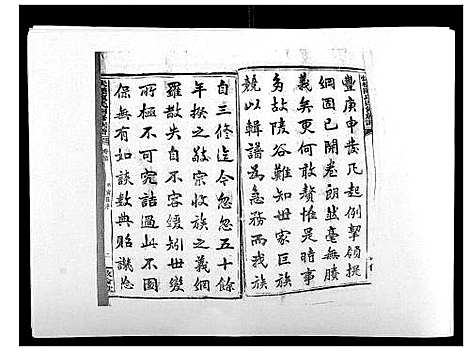 豐庚申歲凡起例挈領提
綱固已開卷朗然毫無賸
義矣更何敢贅惟是時事
多故陵谷難知世家巨族
競以輯譜為急務而我族
自三修迄今忽忽五十餘
年揆之敬宗收族之義網
羅散失自不容緩矧世變
所極不可究詰過此不圖
保無有如談數典貽譏忘